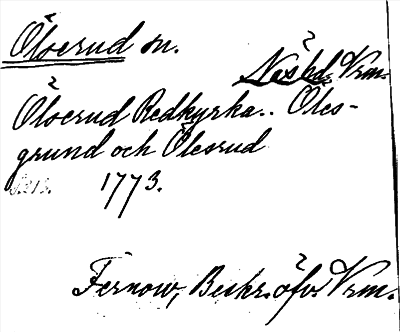 Ölserud sn.
Näs hd, Vrm.
Ölserud Redkyrka.. Öles-
grund och Ölesrud
1773.
Fernow, Beskr. öfv. Vrm.